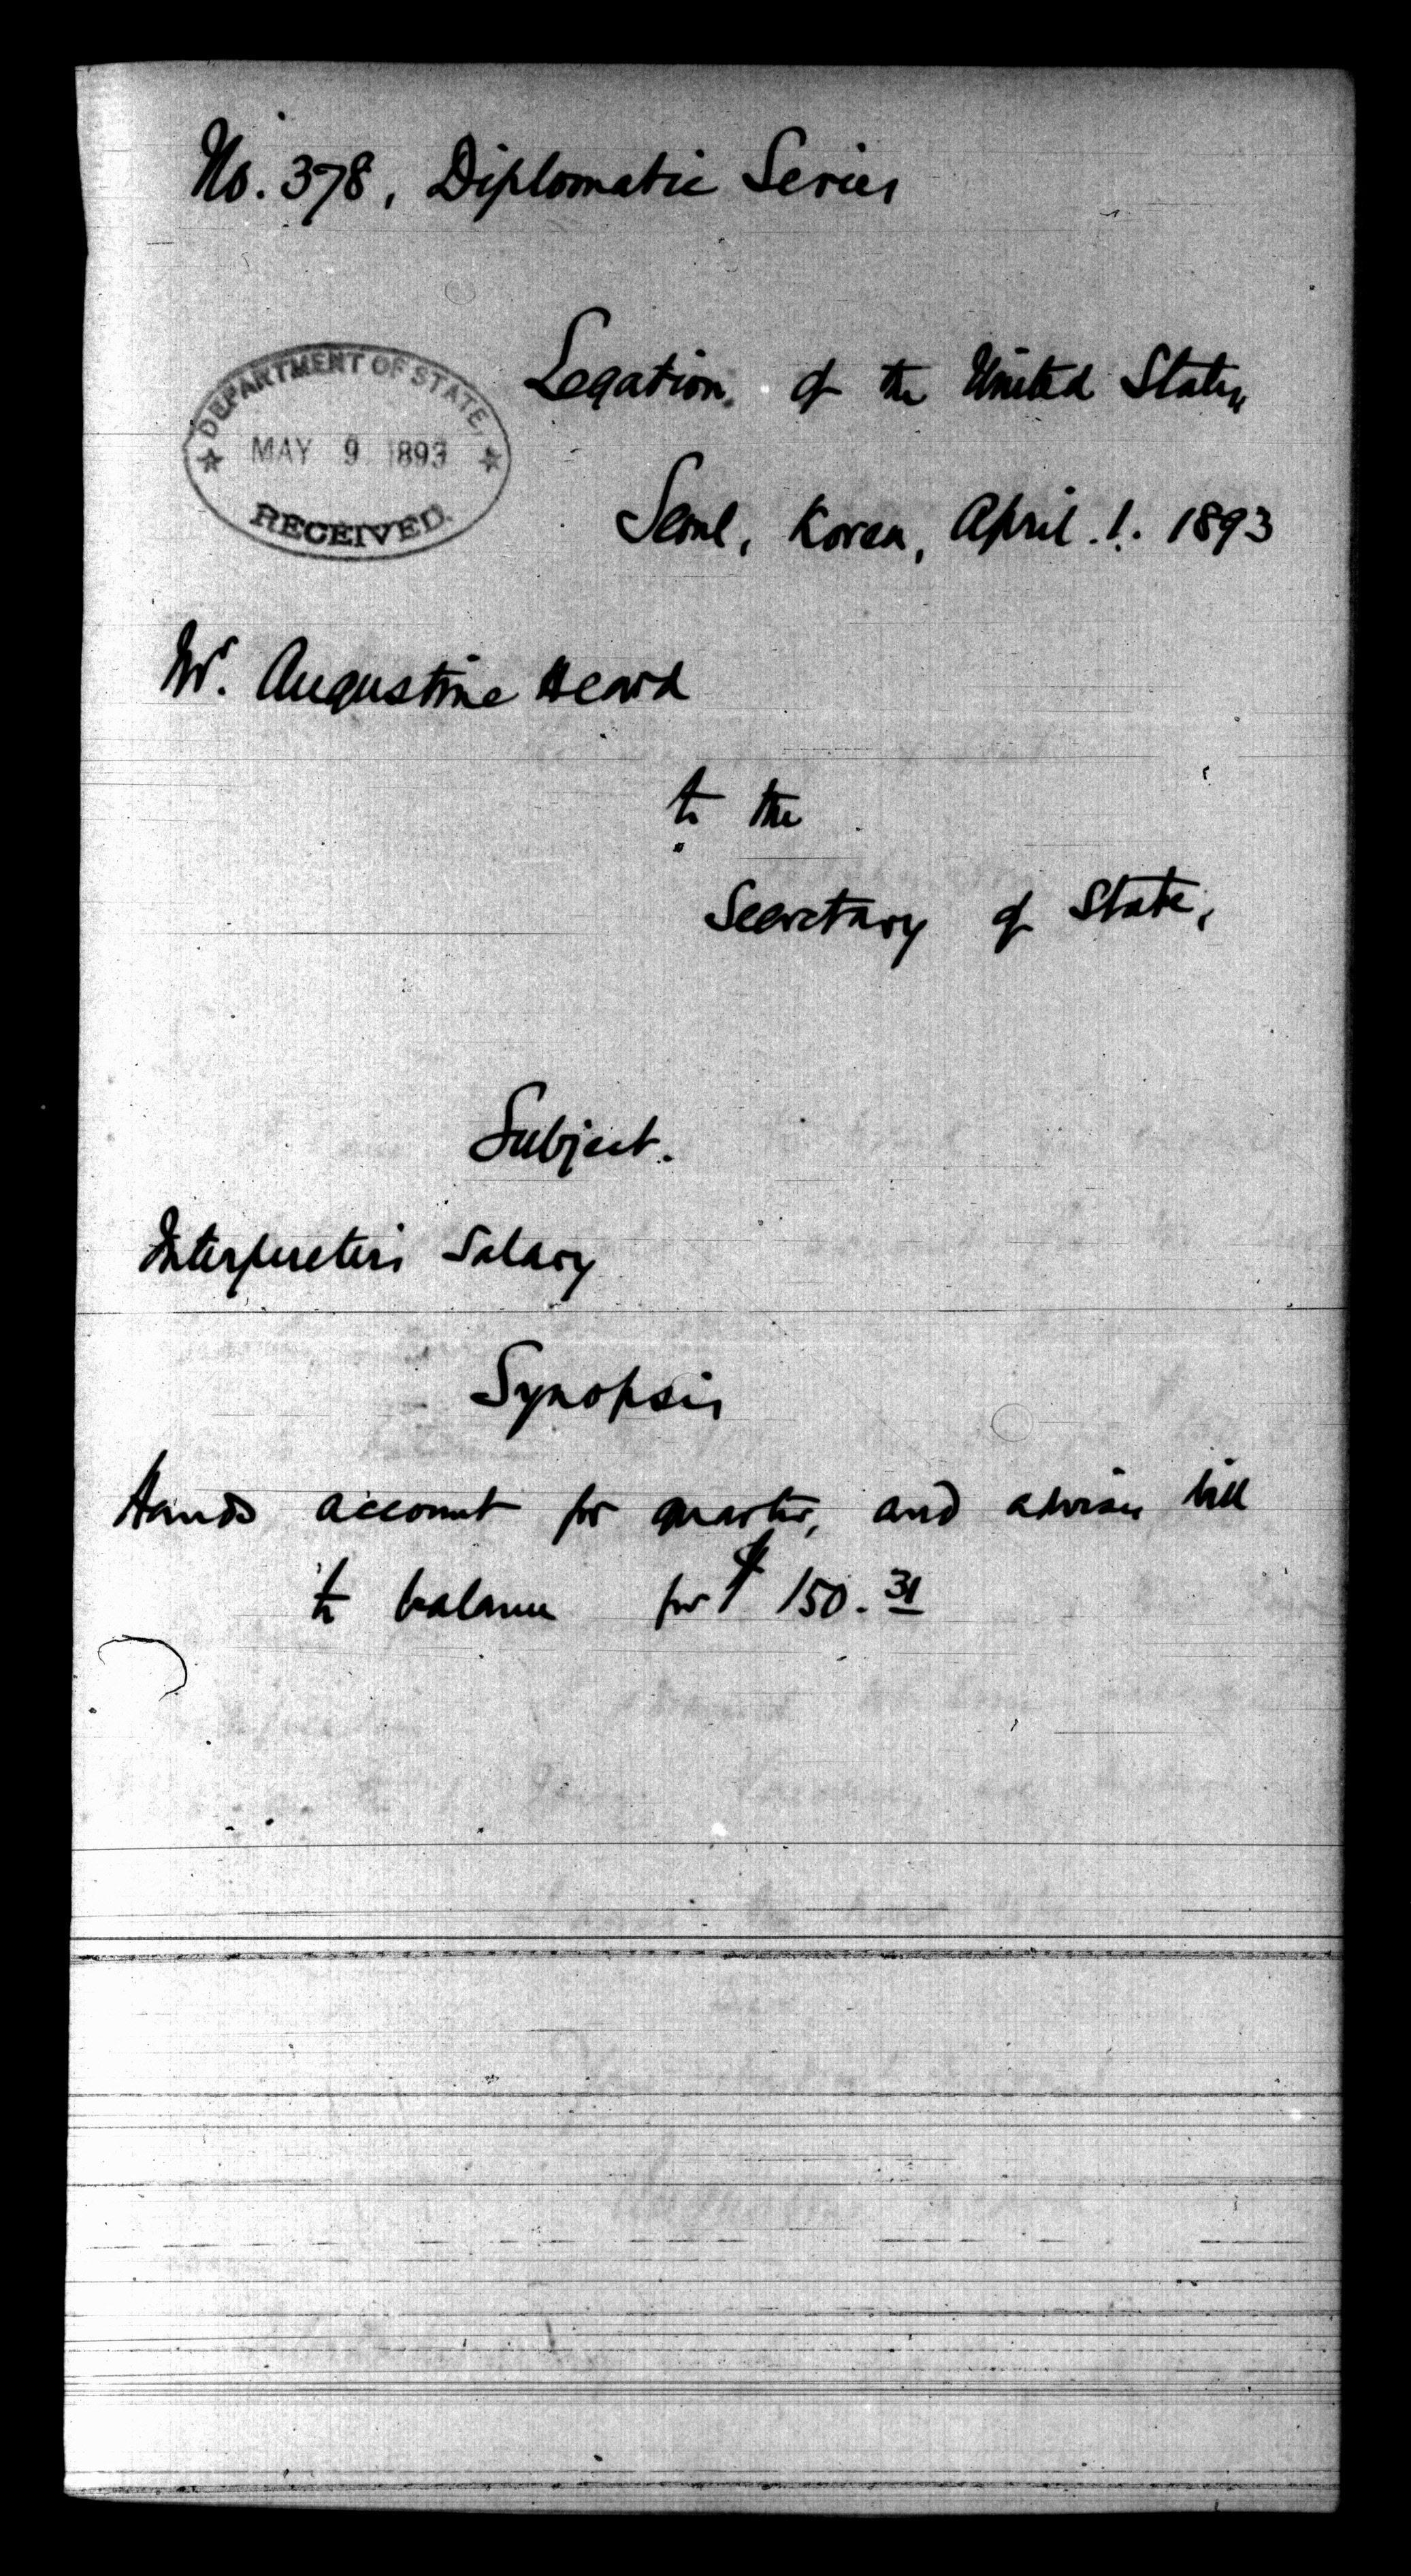 No. 378, Diplomatic Series
Legation of the United States,
DEPARTMENT OF STATE,
MAY 9 1893
RECEIVED.
Seoul, Korea, April 1. 1893
Mr. Augustine Heard
to the
Secretary of State,
Subject.
Interpreter's Salary
Synopsis
Hands account for quarter, and advises bill
to balance for $ 150.31